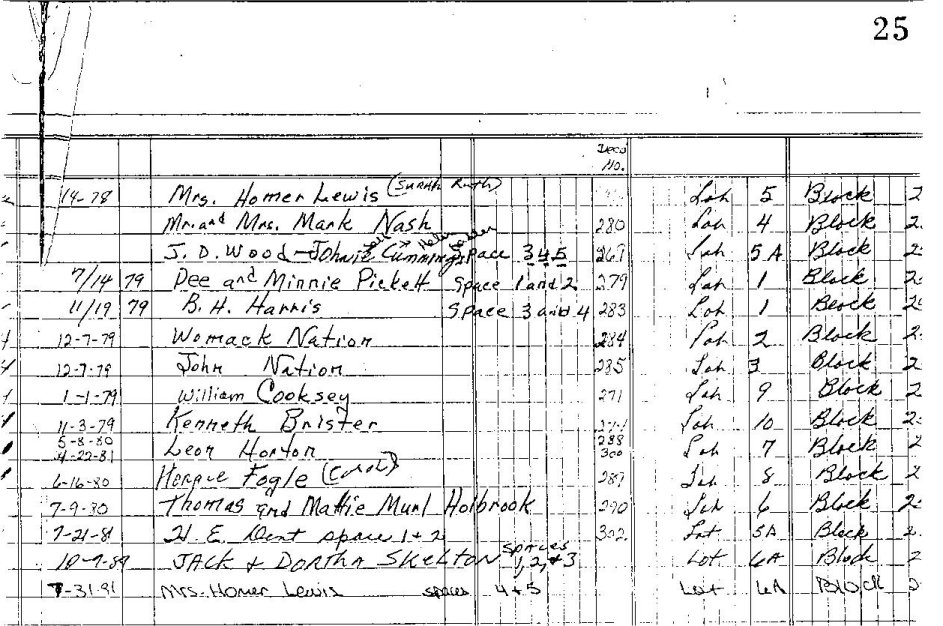 25
Deed
No.
14-78 Mrs. Homer Lewis (Surah Ruth) Lot 5 Block 2
Mr. and Mrs. Mark Nash 280 Lot 4 Block 2
J. D. Wood - Johnie Cummings Space 3 4 5 269 Lot 5A Block 2
7/14 79 Dee and Minnie Pickett Space 1 and 2 279 Lot 1 Block 2
11/19 79 B. H. Harris Space 3 and 4 283 Lot 1 Block 2
12-7-79 Womack Nation 284 Lot 2 Block 2
12-7-79 John Nation 285 Lot 3 Block 2
1-1-79 William Cooksey 271 Lot 9 Block 2
11-3-79 Kenneth Brister Lot 10 Block 2
5-8-80 288
4-22-81 Leon Horton 300 Lot 7 Block 2
6-16-80 Horace Fogle (Carol) 289 Lot 8 Block 2
7-9-80 Thomas and Mattie Murl Holbrook 290 Lot 6 Block 2
7-21-81 H. E. Dent space 1 + 2 302 Lot 5A Block 2
JACK & DORTHA SKELTON spaces 1, 2, & 3 Lot 6A Block 2
7-31-91 Mrs. Homer Lewis spaces 4 + 5 Lot 6A Block 2